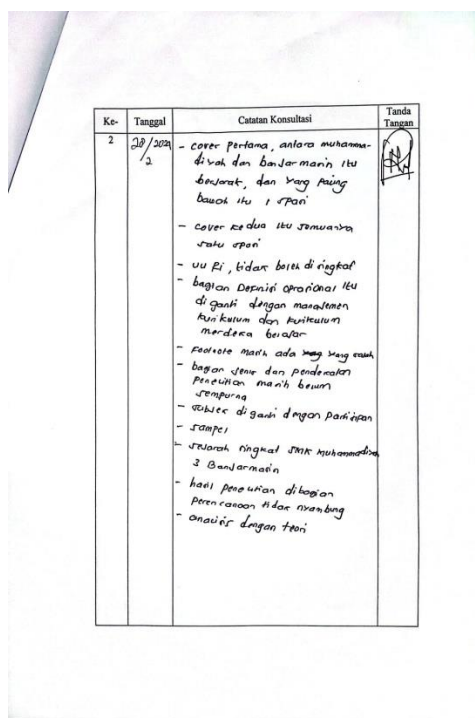 Ke- Tanggal Catatan Konsultasi Tanda Tangan
2 28/2024 2
- cover pertama, antara muhamma-
diyah dan banjarmasin itu
berjarak, dan yang paling
bawah itu 1 spasi
- cover kedua itu semuanya
satu spasi
- uu Ri, tidak boleh di singkat
- bagian Definisi oprasional itu
di ganti dengan manajemen
kurikulum dan kurikulum
merdeka belajar
- footnote masih ada yang salah
- bagian jenis dan pendekatan
penelitian masih belum
sempurna
- subjek diganti dengan partisipan
- sampel
- sejarah singkat SMK muhammadiyah
3 Banjarmasin
- hasil penelitian dibagian
perencanaan tidak nyambung
- analisis dengan teori